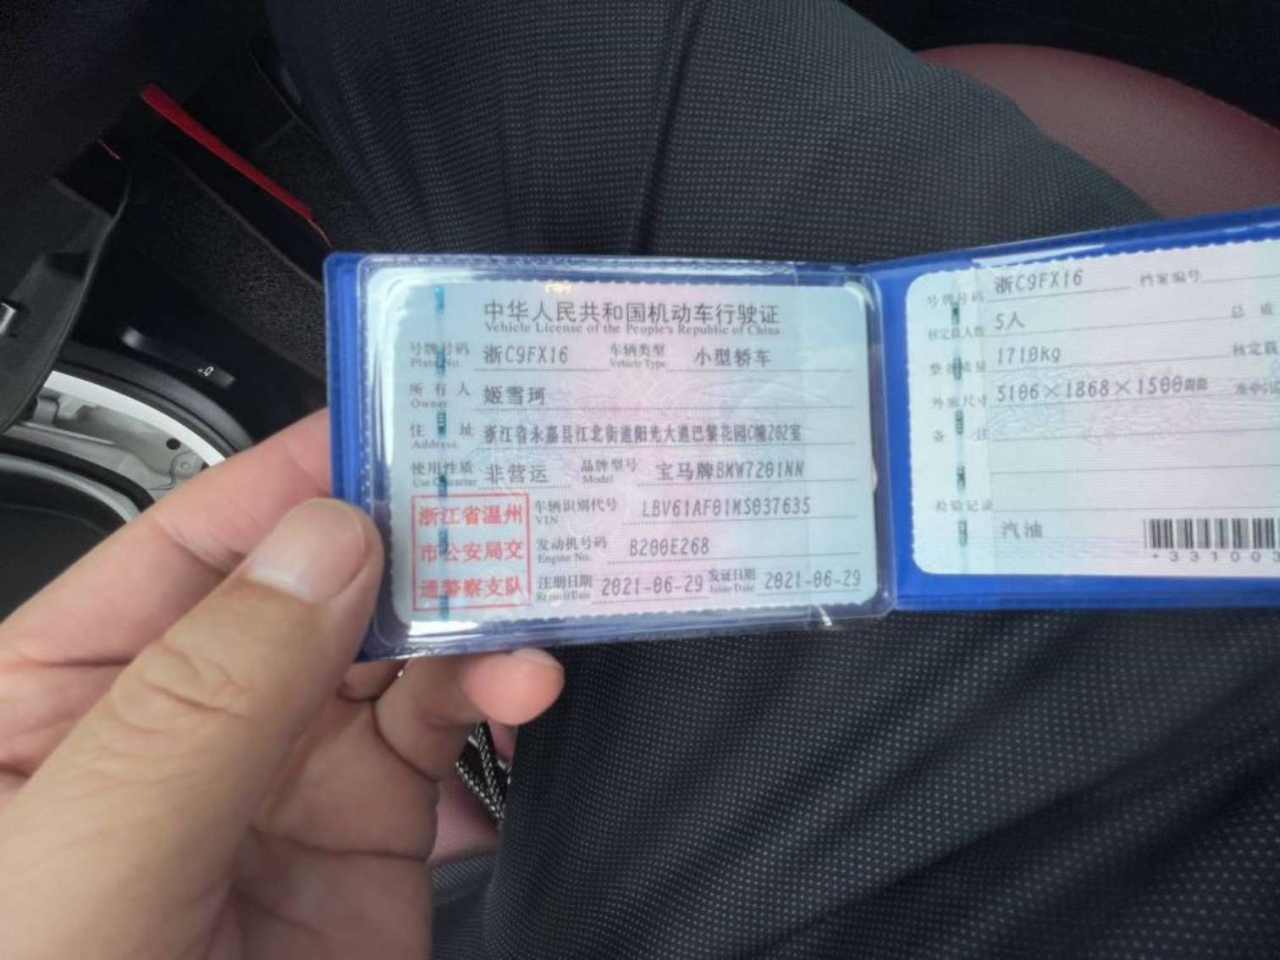 中华人民共和国机动车行驶证
Vehicle License of the People's Republic of China
号牌号码 浙C9FX16 车辆类型 小型轿车
Plate No. Vehicle Type
所有人 姬雪珂
Owner
住址 浙江省永嘉县江北街道阳光大道巴黎花园C幢202室
Address
使用性质 非营运 品牌型号 宝马牌BMW7201NN
Use Character Model
浙江省温州
市公安局交
通警察支队
车辆识别代号 LBV61AF01MS037635
VIN
发动机号码 B200E268
Engine No.
注册日期 2021-06-29 发证日期 2021-06-29
Register Date Issue Date
号牌号码 浙C9FX16 档案编号
核定载人数 5人 总质
整备质量 1710kg 核定载
外廓尺寸 5106×1868×1500mm
备注
检验记录
汽油
*331003